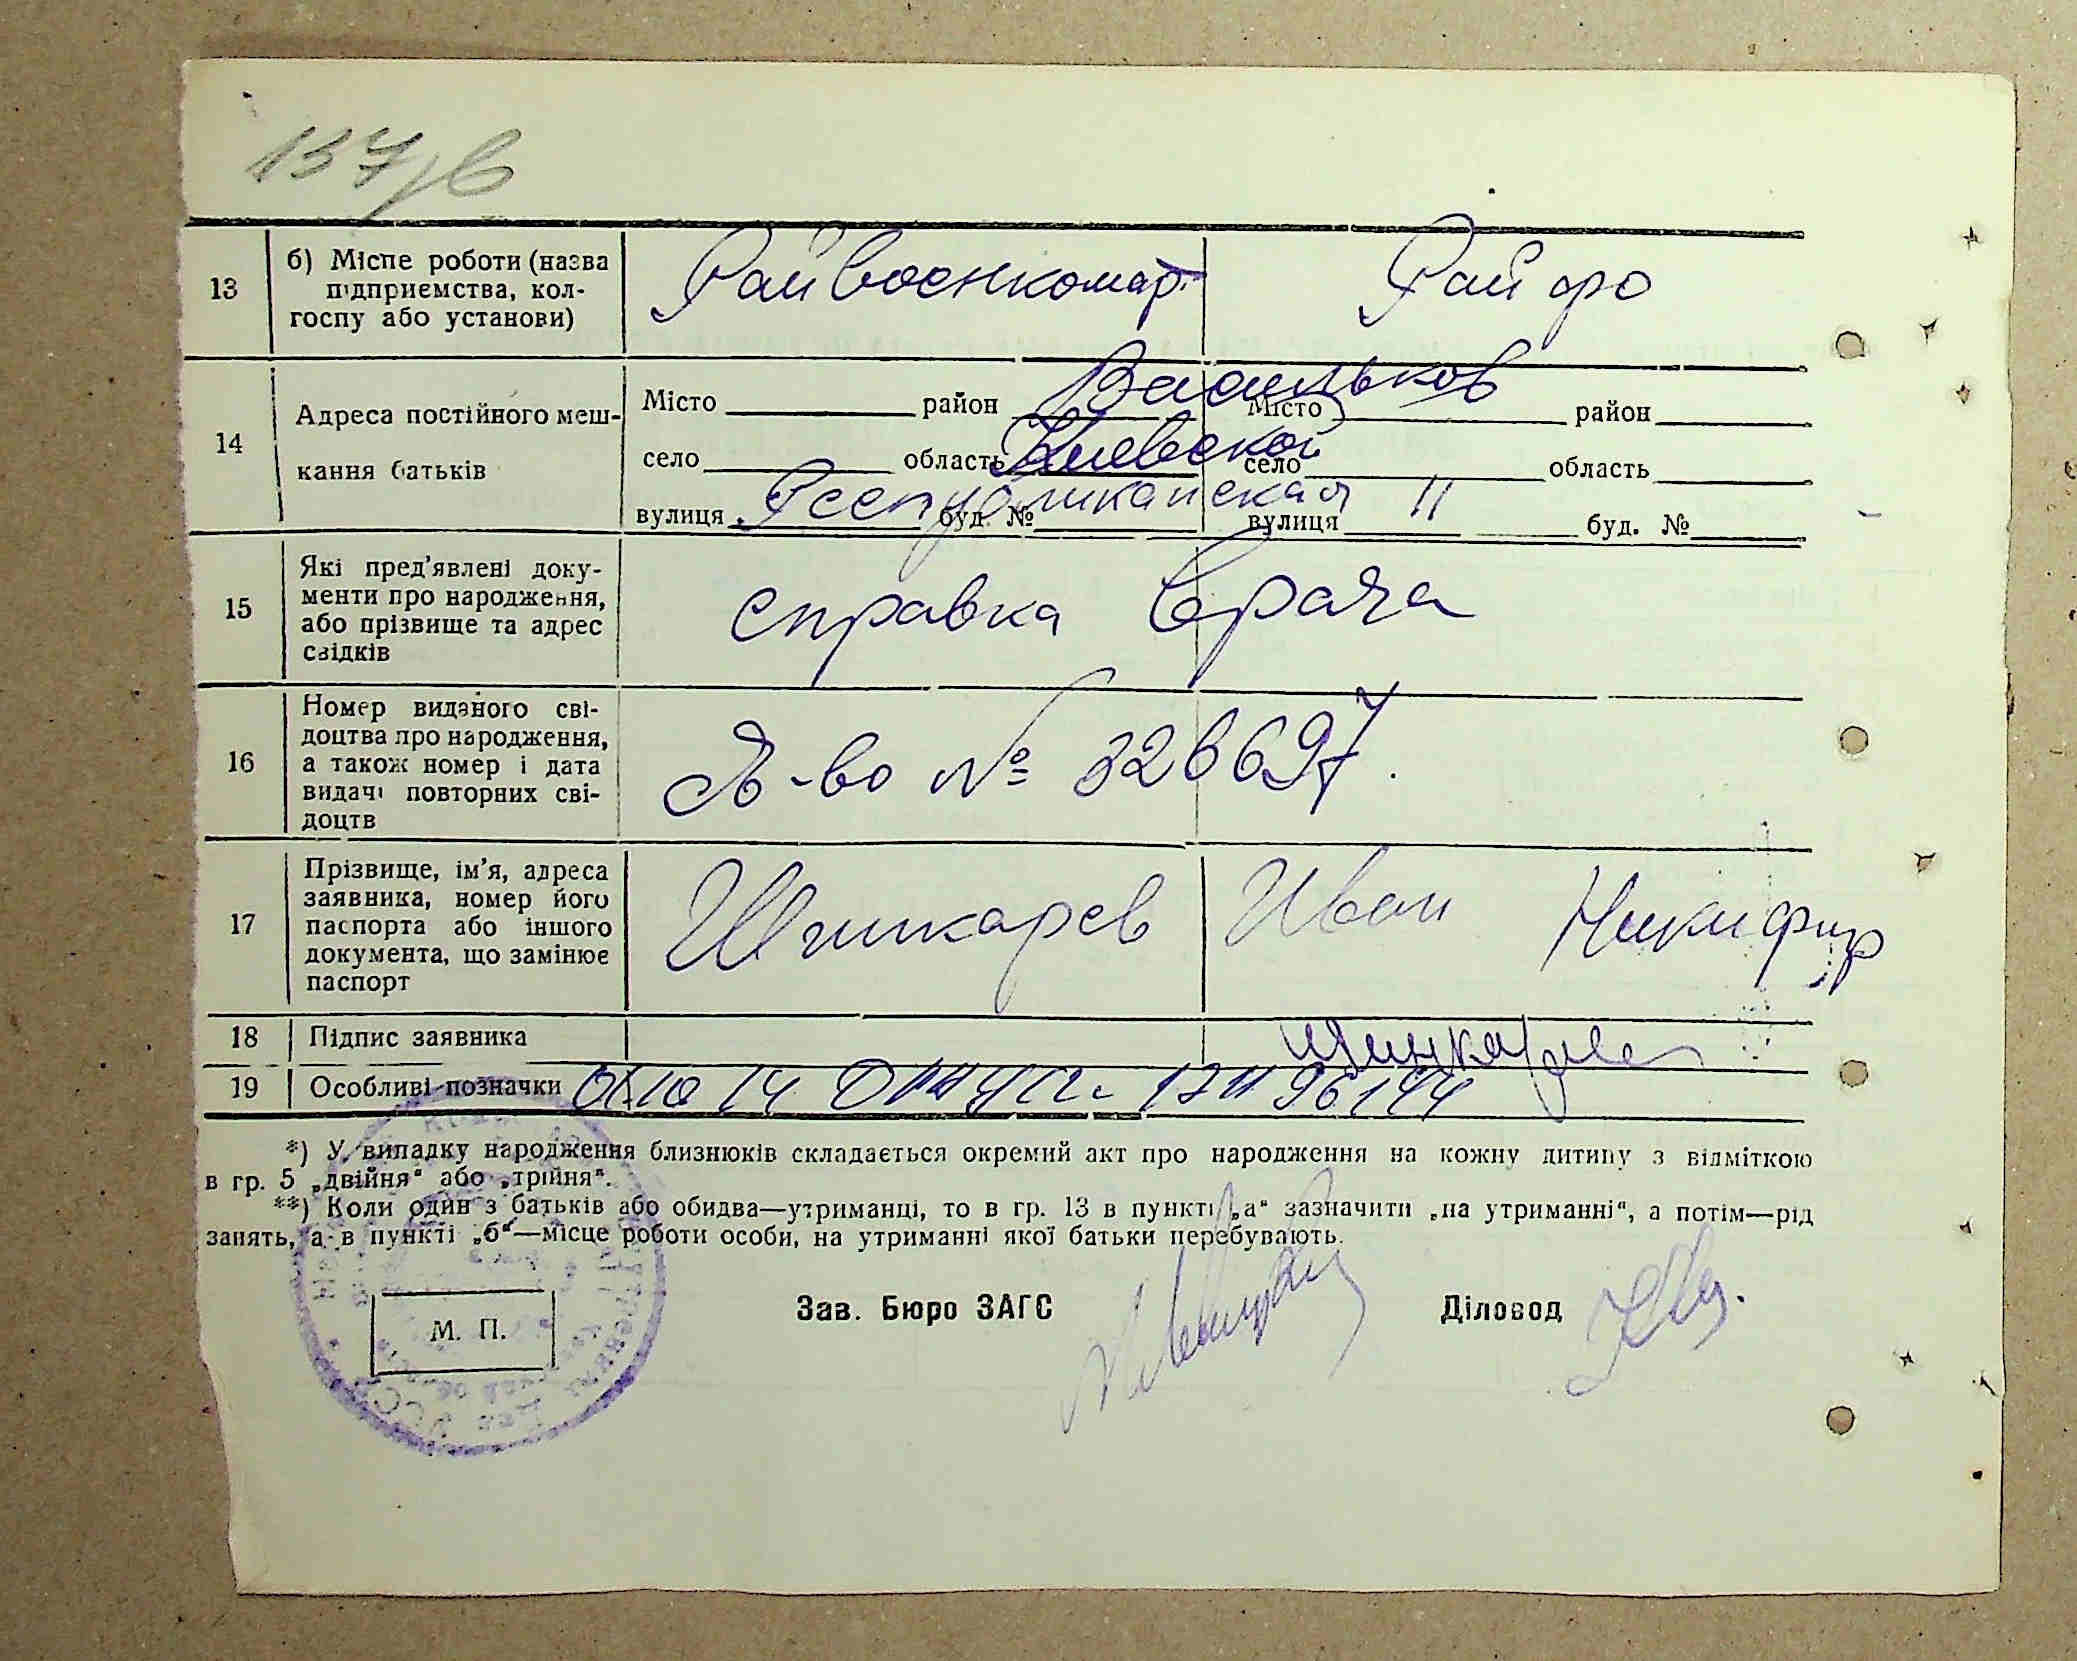 137/в
13 б) Місце роботи (назва підприємства, колгоспу або установи) Райвоенкомат Райфо
14 Адреса постійного мешкання батьків
Місто район Васильков Місто район
село область Киевской село область
вулиця Республиканская 11 буд. № вулиця буд. №
15 Які пред'явлені документи про народження, або прізвище та адрес свідків
справка врача
16 Номер виданого свідоцтва про народження, а також номер і дата видачі повторних свідоцтв
-во № 326697.
17 Прізвище, ім'я, адреса заявника, номер його паспорта або іншого документа, що замінює паспорт
Шинкарев Иван Никифир
18 Підпис заявника Шинкарев
19 Особливі позначки
*) У випадку народження близнюків складається окремий акт про народження на кожну дитину з відміткою
в гр. 5 „двійня“ або „трійня“.
**) Коли один з батьків або обидва—утриманці, то в гр. 13 в пункті „а“ зазначити „на утриманні“, а потім—рід
занять, а в пункті „б“—місце роботи особи, на утриманні якої батьки перебувають.
Зав. Бюро ЗАГС Діловод
М. П.